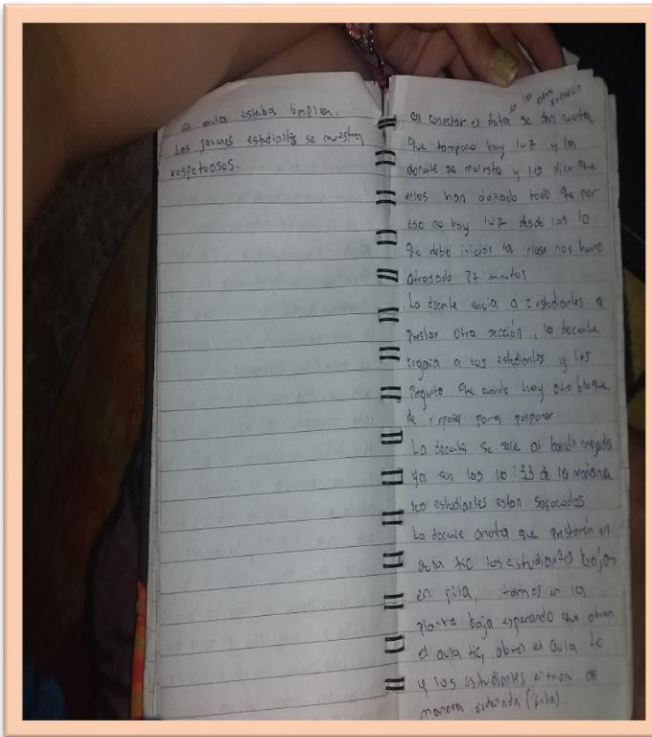 El aula estaba limpia.
Los jovenes estudiantes se muestran
respetuosos.
en la otra sección
Al conectar el data se dan cuenta
que tampoco hay luz y la
docente se molesta y les dice que
ellos han dañado todo que por
eso no hay luz desde las 10
que debió iniciar la clase nos hemos
atrasado 22 minutos
La docente envia a 2 estudiantes a
prestar otra sección, la docente
regaña a los estudiantes y les
pregunta que cuando hay otro bloque
de español para posponer
La docente se sale al balcón enojada
ya son las 10:33 de la mañana
los estudiantes estan sofocados
La docente anota que prestarán el
aula tic los estudiantes bajan
en fila. tamos en la
planta baja esperando que abran
el aula tic, abren el aula tic
y los estudiantes entran de
manera ordenada (fila).